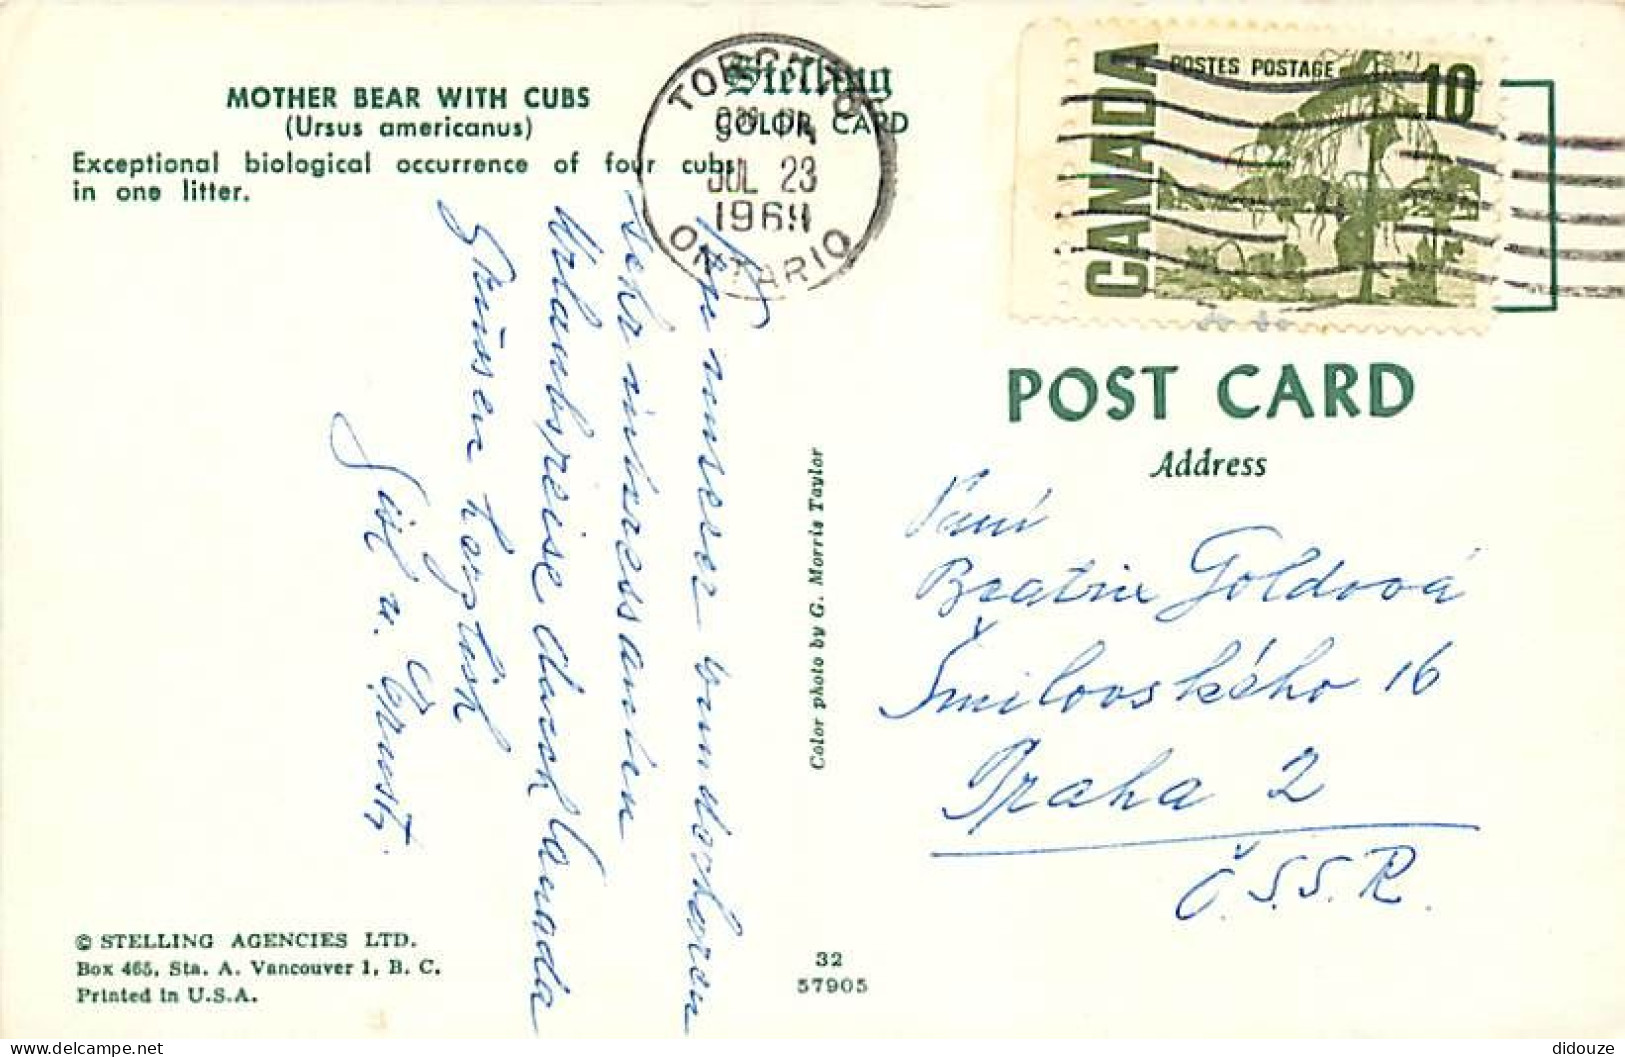 MOTHER BEAR WITH CUBS
(Ursus americanus)
Exceptional biological occurrence of four cubs
in one litter.
Stelling
COLOR CARD
TORONTO
JUL 23
1969
ONTARIO
CANADA
POSTES POSTAGE 10
POST CARD
Address
Paní
Beatrix Goldová
Šmilovského 16
Praha 2
Č.S.S.R.
unserer wunderbaren
sehr interessanten
Urlaubsreise durch Canada
Grüssen herzlich
u. Ernst.
Color photo by G. Morris Taylor
© STELLING AGENCIES LTD.
Box 465, Sta. A. Vancouver 1, B. C.
Printed in U.S.A.
32
57905
didouze